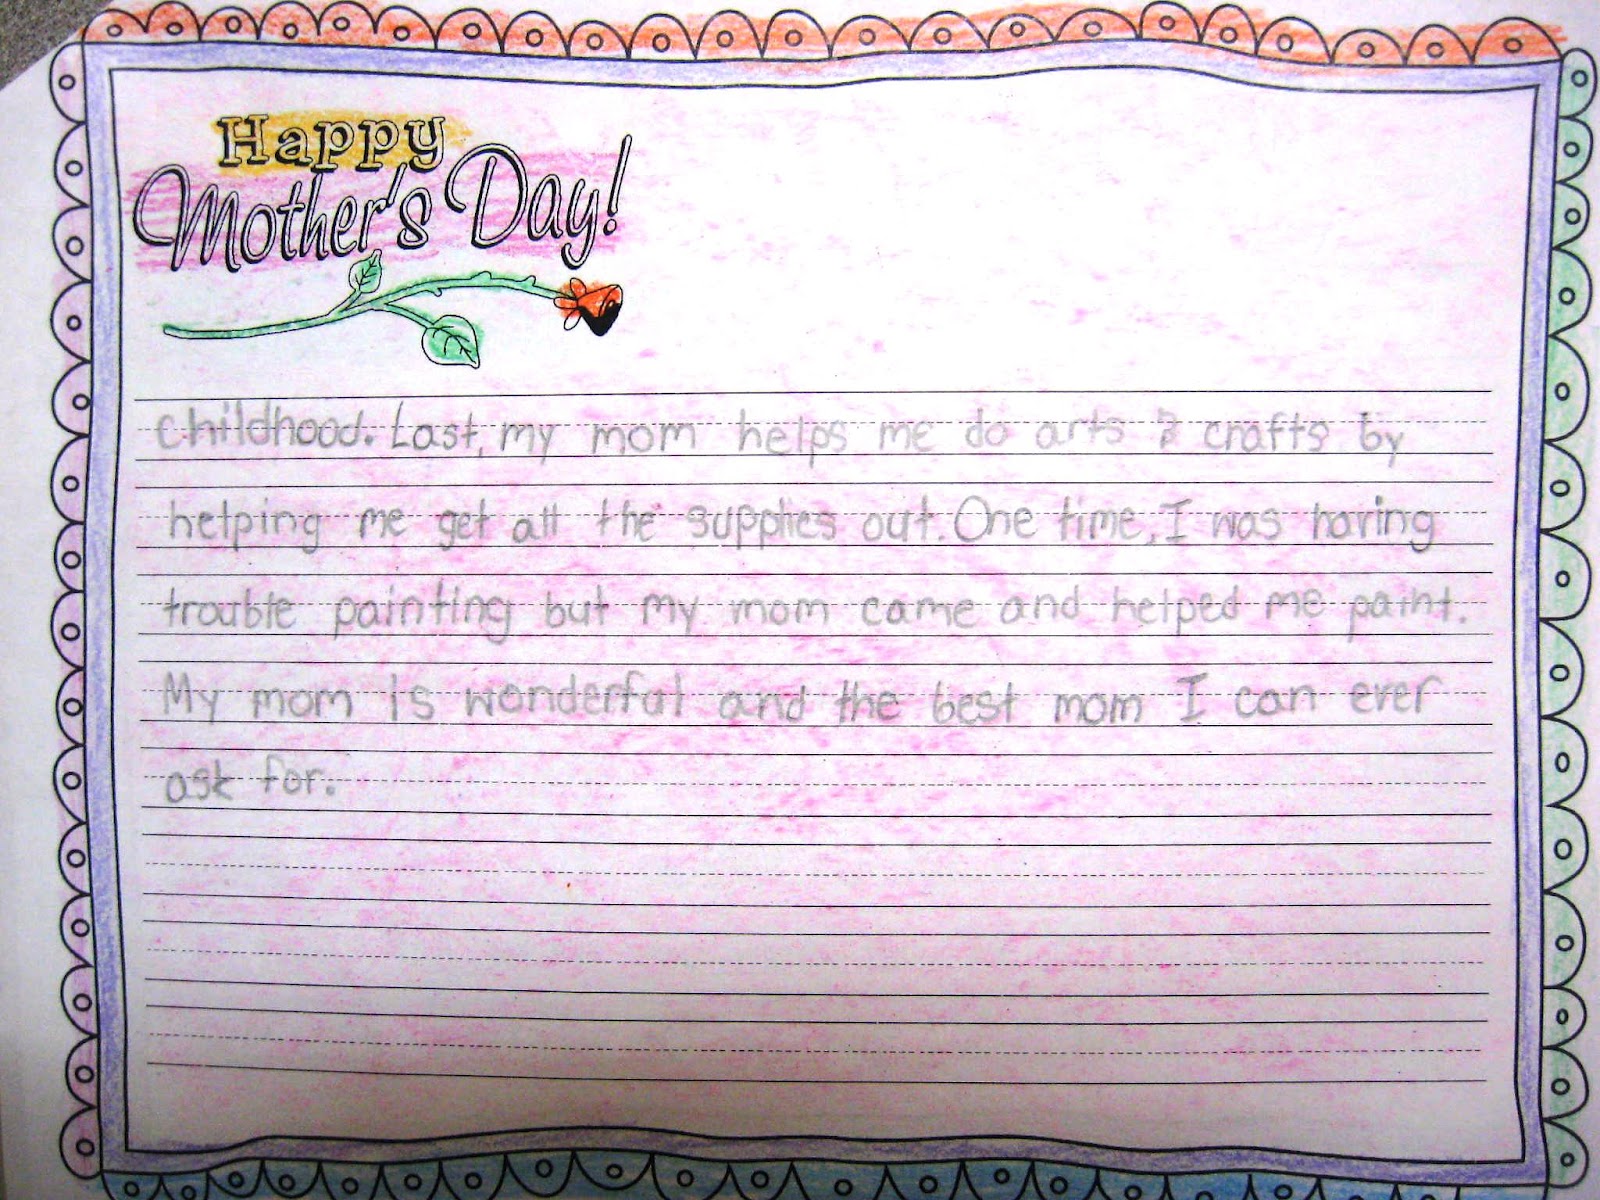 Happy
Mother's Day!
childhood. Last, my mom helps me do arts & crafts by
helping me get all the supplies out. One time, I was having
trouble painting but my mom came and helped me paint.
My mom is wonderful and the best mom I can ever
ask for.